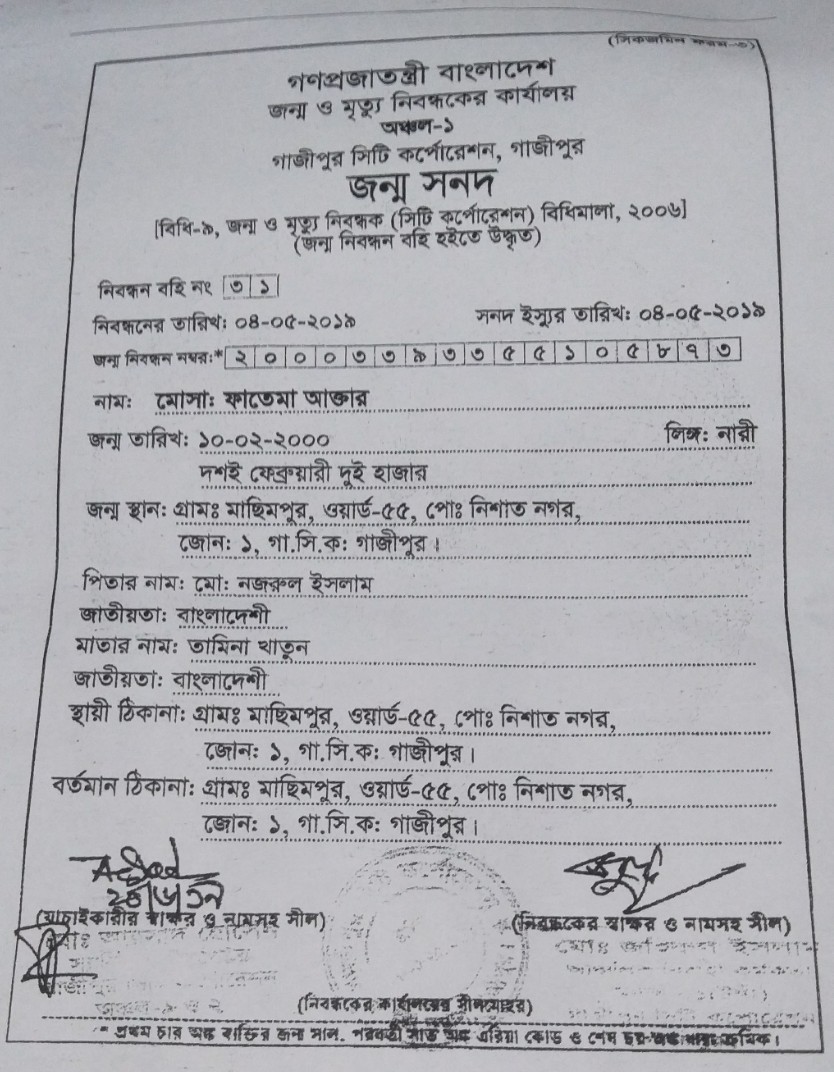 (সিকজমনি ফরম-৩)
গণপ্রজাতন্ত্রী বাংলাদেশ
জন্ম ও মৃত্যু নিবন্ধকের কার্যালয়
অঞ্চল-১
গাজীপুর সিটি কর্পোরেশন, গাজীপুর
জন্ম সনদ
[বিধি-৯, জন্ম ও মৃত্যু নিবন্ধক (সিটি কর্পোরেশন) বিধিমালা, ২০০৬]
(জন্ম নিবন্ধন বহি হইতে উদ্ধৃত)
নিবন্ধন বহি নং ৩১
নিবন্ধনের তারিখ: ০৪-০৫-২০১৯ সনদ ইস্যুর তারিখ: ০৪-০৫-২০১৯
জন্ম নিবন্ধন নম্বর:* ২০০০৩৩৯৩৩৫৫১০৫৮৭৩
নাম: মোসা: ফাতেমা আক্তার
জন্ম তারিখ: ১০-০২-২০০০ লিঙ্গ: নারী
দশই ফেব্রুয়ারী দুই হাজার
জন্ম স্থান: গ্রামঃ মাছিমপুর, ওয়ার্ড-৫৫, পোঃ নিশাত নগর,
জোন: ১, গা.সি.ক: গাজীপুর।
পিতার নাম: মো: নজরুল ইসলাম
জাতীয়তা: বাংলাদেশী
মাতার নাম: তামিনা খাতুন
জাতীয়তা: বাংলাদেশী
স্থায়ী ঠিকানা: গ্রামঃ মাছিমপুর, ওয়ার্ড-৫৫, পোঃ নিশাত নগর,
জোন: ১, গা.সি.ক: গাজীপুর।
বর্তমান ঠিকানা: গ্রামঃ মাছিমপুর, ওয়ার্ড-৫৫, পোঃ নিশাত নগর,
জোন: ১, গা.সি.ক: গাজীপুর।
(যাচাইকারীর স্বাক্ষর ও নামসহ সীল) (নিবন্ধকের স্বাক্ষর ও নামসহ সীল)
(নিবন্ধকের কার্যালয়ের সীলমোহর)
* প্রথম চার অঙ্ক ব্যক্তির জন্ম সাল, পরবর্তী সাত অঙ্ক এরিয়া কোড ও শেষ ছয় অঙ্ক ক্রমিক।